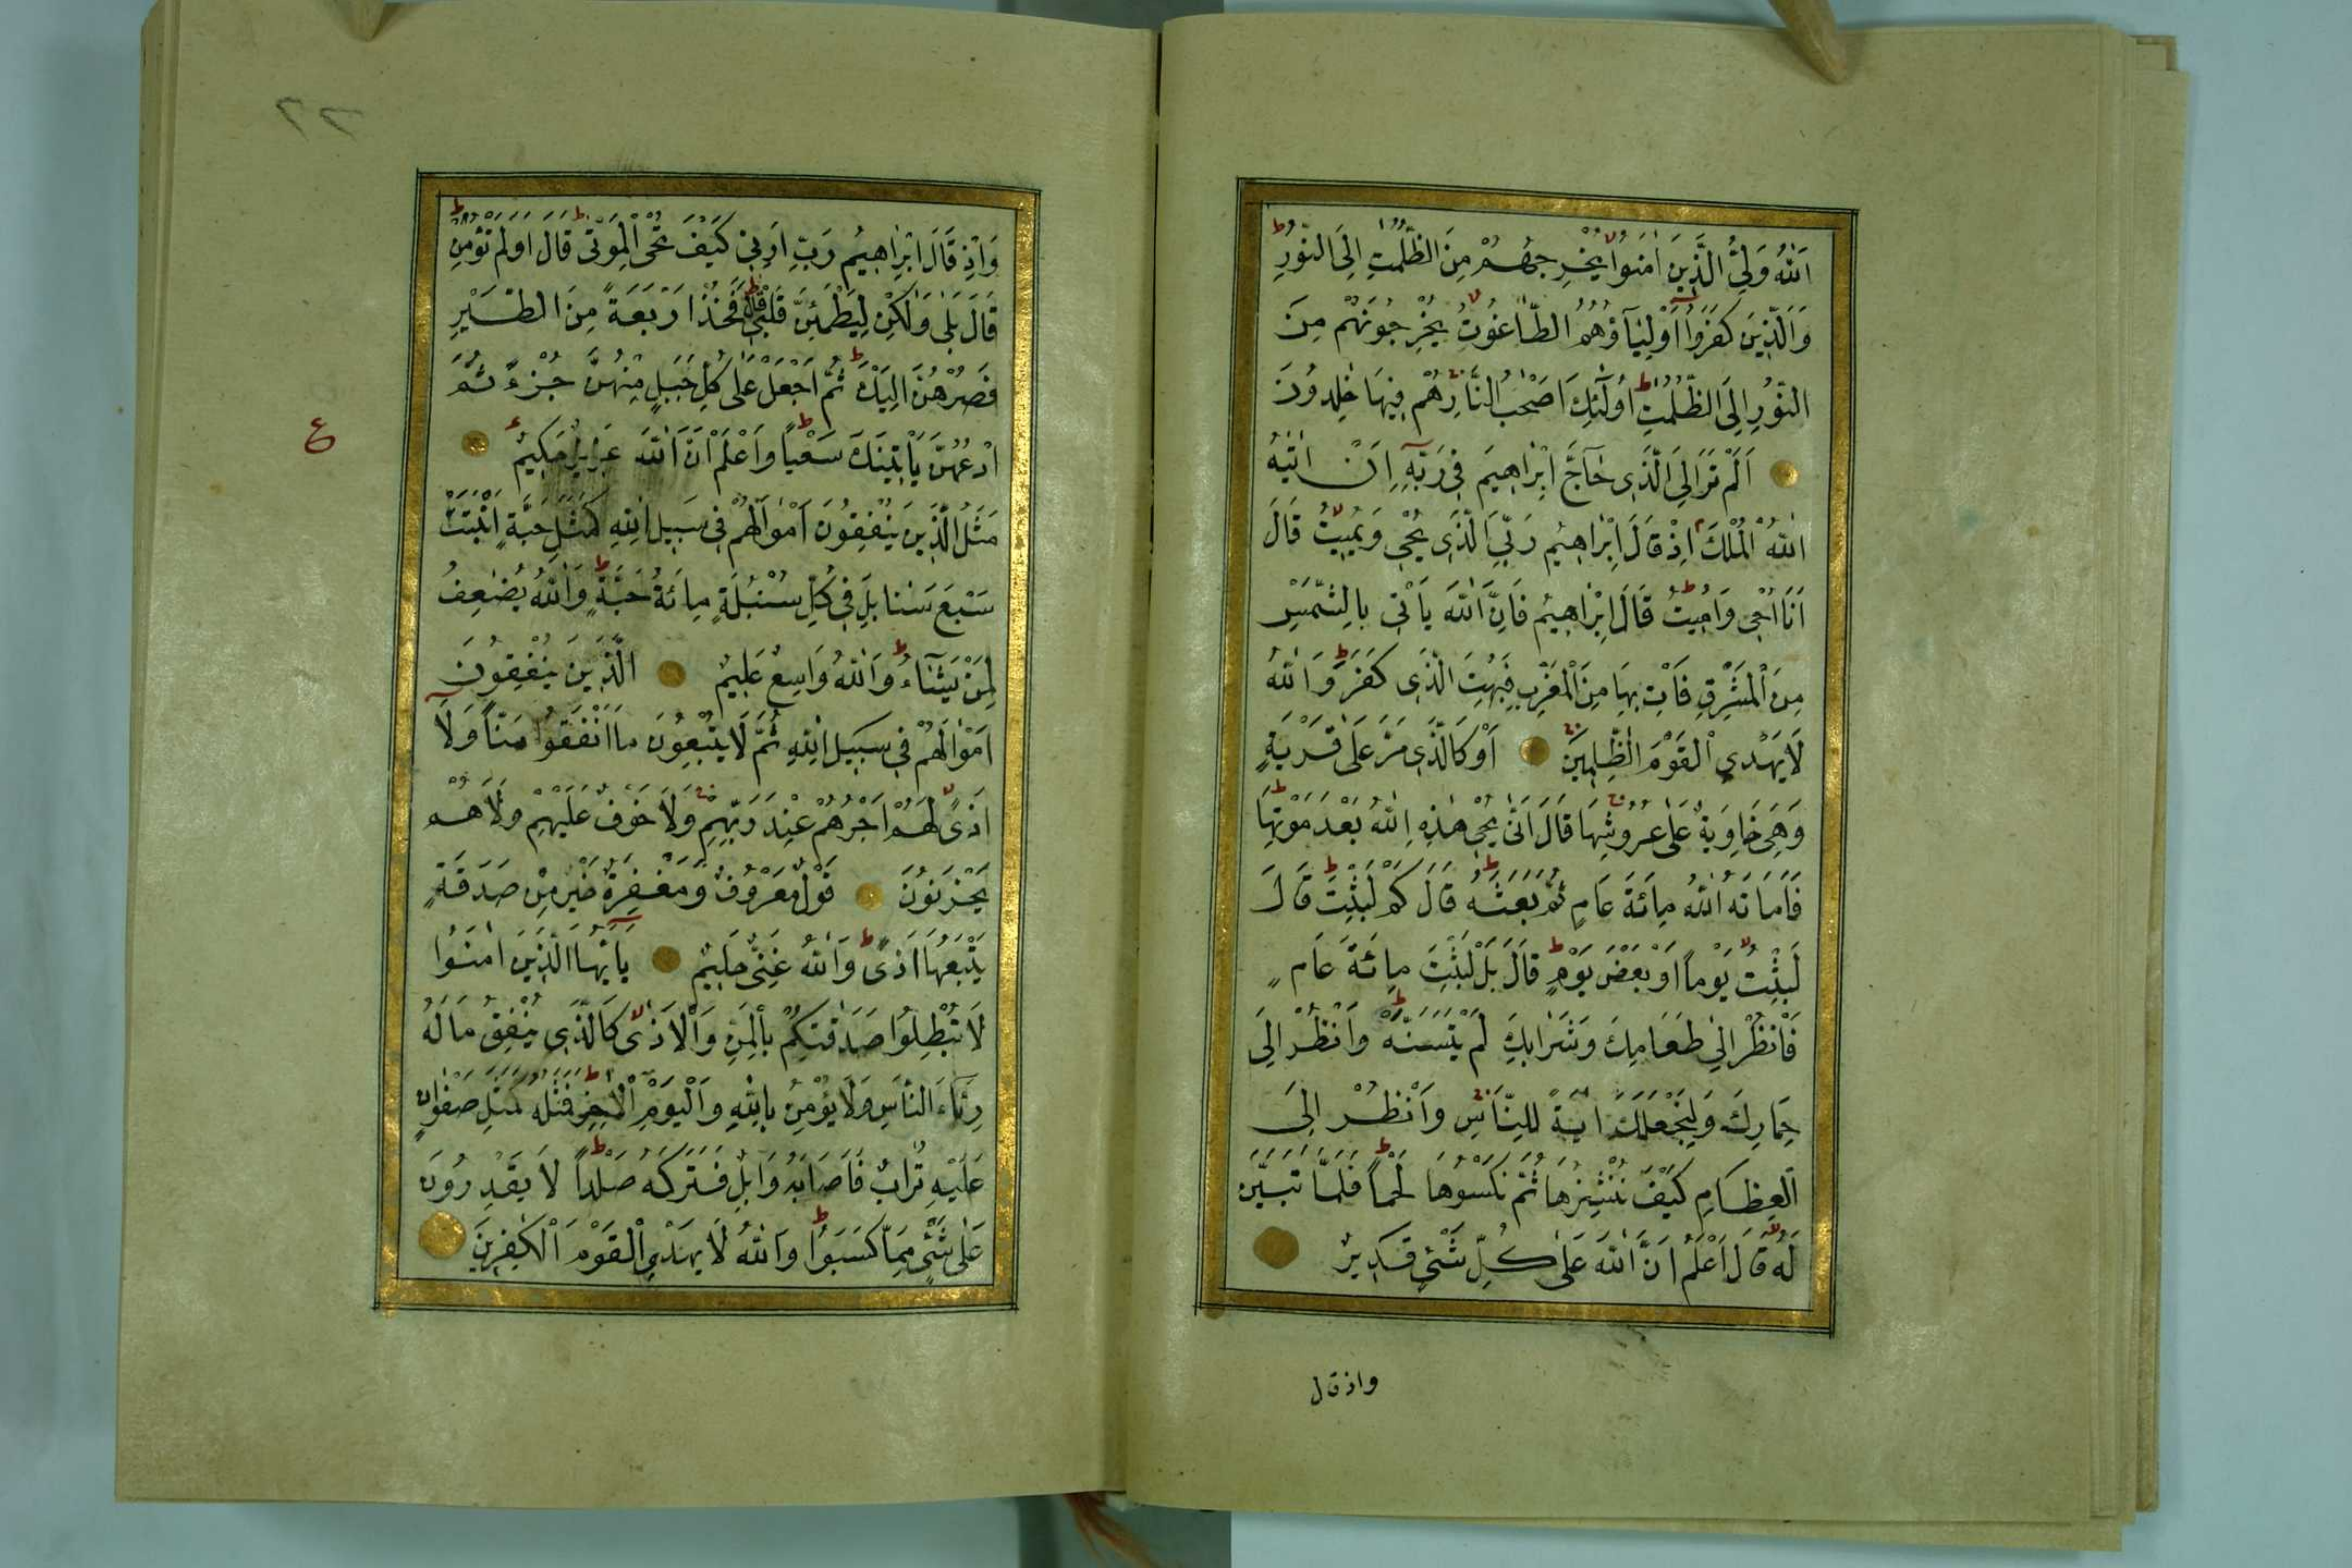 اَللّٰهُ وَلِيُّ الَّذِينَ اٰمَنُوا يُخْرِجُهُمْ مِنَ الظُّلُمٰتِ اِلَى النُّورِ ط
وَالَّذِينَ كَفَرُوا اَوْلِيَآؤُهُمُ الطَّاغُوتُ لا يُخْرِجُونَهُمْ مِنَ
النُّورِ اِلَى الظُّلُمٰتِ ط اُولٰٓئِكَ اَصْحٰبُ النَّارِ هُمْ فِيهَا خٰلِدُونَ
اَلَمْ تَرَ اِلَى الَّذِي حَآجَّ اِبْرٰاهِيمَ فِي رَبِّهِٓ اَنْ اٰتٰيهُ
اللّٰهُ الْمُلْكَ م اِذْ قَالَ اِبْرٰاهِيمُ رَبِّيَ الَّذِي يُحْيِ وَيُمِيتُ لا قَالَ
اَنَا اُحْيِ وَاُمِيتُ ط قَالَ اِبْرٰاهِيمُ فَاِنَّ اللّٰهَ يَاْتِي بِالشَّمْسِ
مِنَ الْمَشْرِقِ فَاْتِ بِهَا مِنَ الْمَغْرِبِ فَبُهِتَ الَّذِي كَفَرَ ط وَاللّٰهُ
لَا يَهْدِي الْقَوْمَ الظّٰلِمِينَ اَوْ كَالَّذِي مَرَّ عَلٰى قَرْيَةٍ
وَهِيَ خَاوِيَةٌ عَلٰى عُرُوشِهَا قَالَ اَنّٰى يُحْيِ هٰذِهِ اللّٰهُ بَعْدَ مَوْتِهَا ط
فَاَمَاتَهُ اللّٰهُ مِائَةَ عَامٍ ثُمَّ بَعَثَهُ ط قَالَ كَمْ لَبِثْتَ ط قَالَ
لَبِثْتُ يَوْماً اَوْ بَعْضَ يَوْمٍ ط قَالَ بَلْ لَبِثْتَ مِائَةَ عَامٍ
فَانْظُرْ اِلٰى طَعَامِكَ وَشَرَابِكَ لَمْ يَتَسَنَّهْ ط وَانْظُرْ اِلٰى
حِمَارِكَ وَلِنَجْعَلَكَ اٰيَةً لِلنَّاسِ وَانْظُرْ اِلَى
الْعِظَامِ كَيْفَ نُنْشِزُهَا ثُمَّ نَكْسُوهَا لَحْماً ط فَلَمَّا تَبَيَّنَ
لَهُ لا قَالَ اَعْلَمُ اَنَّ اللّٰهَ عَلٰى كُلِّ شَيْءٍ قَدِيرٌ
واذ قال
٢٢
وَاِذْ قَالَ اِبْرٰاهِيمُ رَبِّ اَرِنِي كَيْفَ تُحْيِ الْمَوْتٰى ط قَالَ اَوَلَمْ تُؤْمِنْ ط
قَالَ بَلٰى وَلٰكِنْ لِيَطْمَئِنَّ قَلْبِي ط قَالَ فَخُذْ اَرْبَعَةً مِنَ الطَّيْرِ
فَصُرْهُنَّ اِلَيْكَ ط ثُمَّ اجْعَلْ عَلٰى كُلِّ جَبَلٍ مِنْهُنَّ جُزْءً ثُمَّ
ادْعُهُنَّ يَاْتِينَكَ سَعْياً ط وَاعْلَمْ اَنَّ اللّٰهَ عَزِيزٌ حَكِيمٌ
ع
مَثَلُ الَّذِينَ يُنْفِقُونَ اَمْوَالَهُمْ فِي سَبِيلِ اللّٰهِ كَمَثَلِ حَبَّةٍ اَنْبَتَتْ
سَبْعَ سَنَابِلَ فِي كُلِّ سُنْبُلَةٍ مِائَةُ حَبَّةٍ ط وَاللّٰهُ يُضٰعِفُ
لِمَنْ يَشَآءُ ط وَاللّٰهُ وَاسِعٌ عَلِيمٌ الَّذِينَ يُنْفِقُونَ
اَمْوَالَهُمْ فِي سَبِيلِ اللّٰهِ ثُمَّ لَا يُتْبِعُونَ مَا اَنْفَقُوا مَنّاً وَلَا
اَذًى لا لَهُمْ اَجْرُهُمْ عِنْدَ رَبِّهِمْ وَلَا خَوْفٌ عَلَيْهِمْ وَلَا هُمْ
يَحْزَنُونَ قَوْلٌ مَعْرُوفٌ وَمَغْفِرَةٌ خَيْرٌ مِنْ صَدَقَةٍ
يَتْبَعُهَا اَذًى ط وَاللّٰهُ غَنِيٌّ حَلِيمٌ يَآ اَيُّهَا الَّذِينَ اٰمَنُوا
لَا تُبْطِلُوا صَدَقٰتِكُمْ بِالْمَنِّ وَالْاَذٰى لا كَالَّذِي يُنْفِقُ مَالَهُ
رِئَاءَ النَّاسِ وَلَا يُؤْمِنُ بِاللّٰهِ وَالْيَوْمِ الْاٰخِرِ ط فَمَثَلُهُ كَمَثَلِ صَفْوَانٍ
عَلَيْهِ تُرَابٌ فَاَصَابَهُ وَابِلٌ فَتَرَكَهُ صَلْداً ط لَا يَقْدِرُونَ
عَلٰى شَيْءٍ مِمَّا كَسَبُوا ط وَاللّٰهُ لَا يَهْدِي الْقَوْمَ الْكٰفِرِينَ